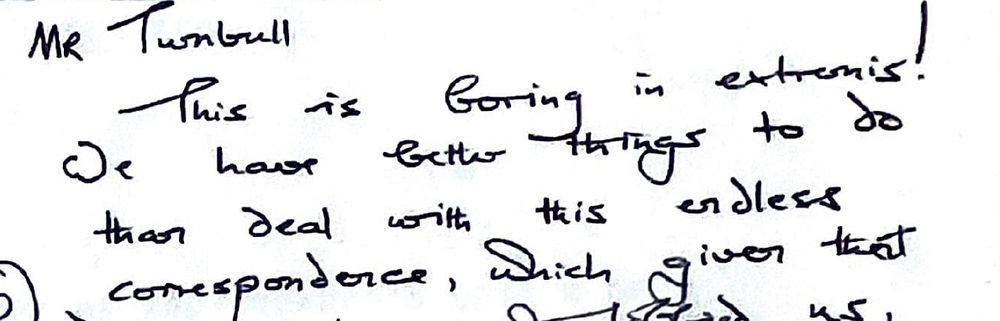 Mr Turnbull
This is boring in extremis!
We have better things to do
than deal with this endless
correspondence, which given that
us,